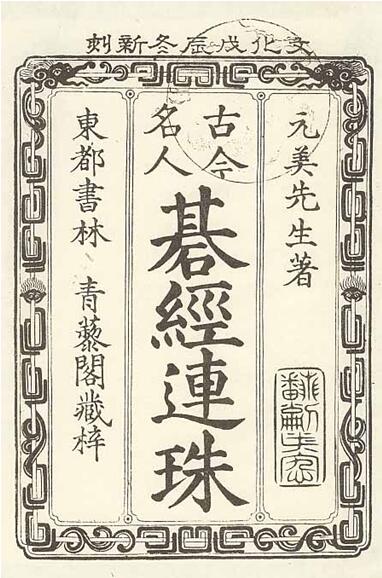 文化戊辰冬新刻
元美先生著
古今
名人
碁經連珠
東都書林 青藜閣藏梓